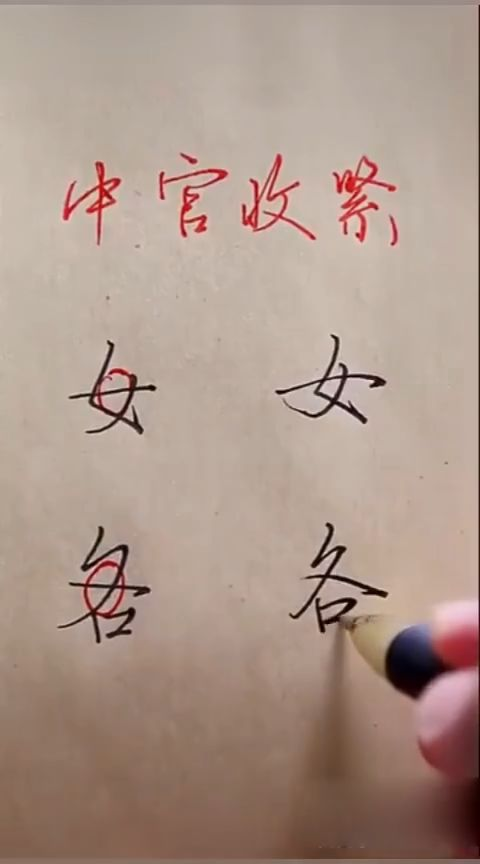 中宫收紧
女 女
各 各